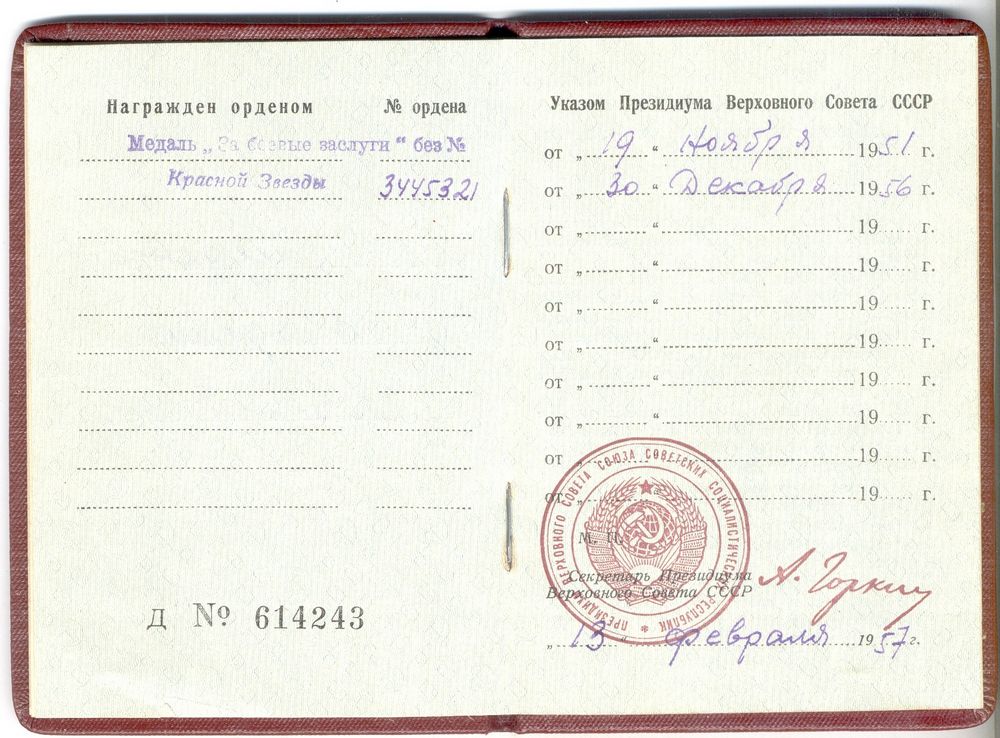 Награжден орденом № ордена
Медаль „За боевые заслуги“ без №
Красной Звезды 3445321
Д № 614243
Указом Президиума Верховного Совета СССР
от „ 19 “ Ноября 1951 г.
от „ 30 “ Декабря 1956 г.
от „ “ 19 г.
от „ “ 19 г.
от „ “ 19 г.
от „ “ 19 г.
от „ “ 19 г.
от „ “ 19 г.
от „ “ 19 г.
от „ “ 19 г.
ПРЕЗИДИУМ ВЕРХОВНОГО СОВЕТА СОЮЗА СОВЕТСКИХ СОЦИАЛИСТИЧЕСКИХ РЕСПУБЛИК
М. П.
Секретарь Президиума
Верховного Совета СССР
А. Горкин
„ 13 “ февраля 1957 г.